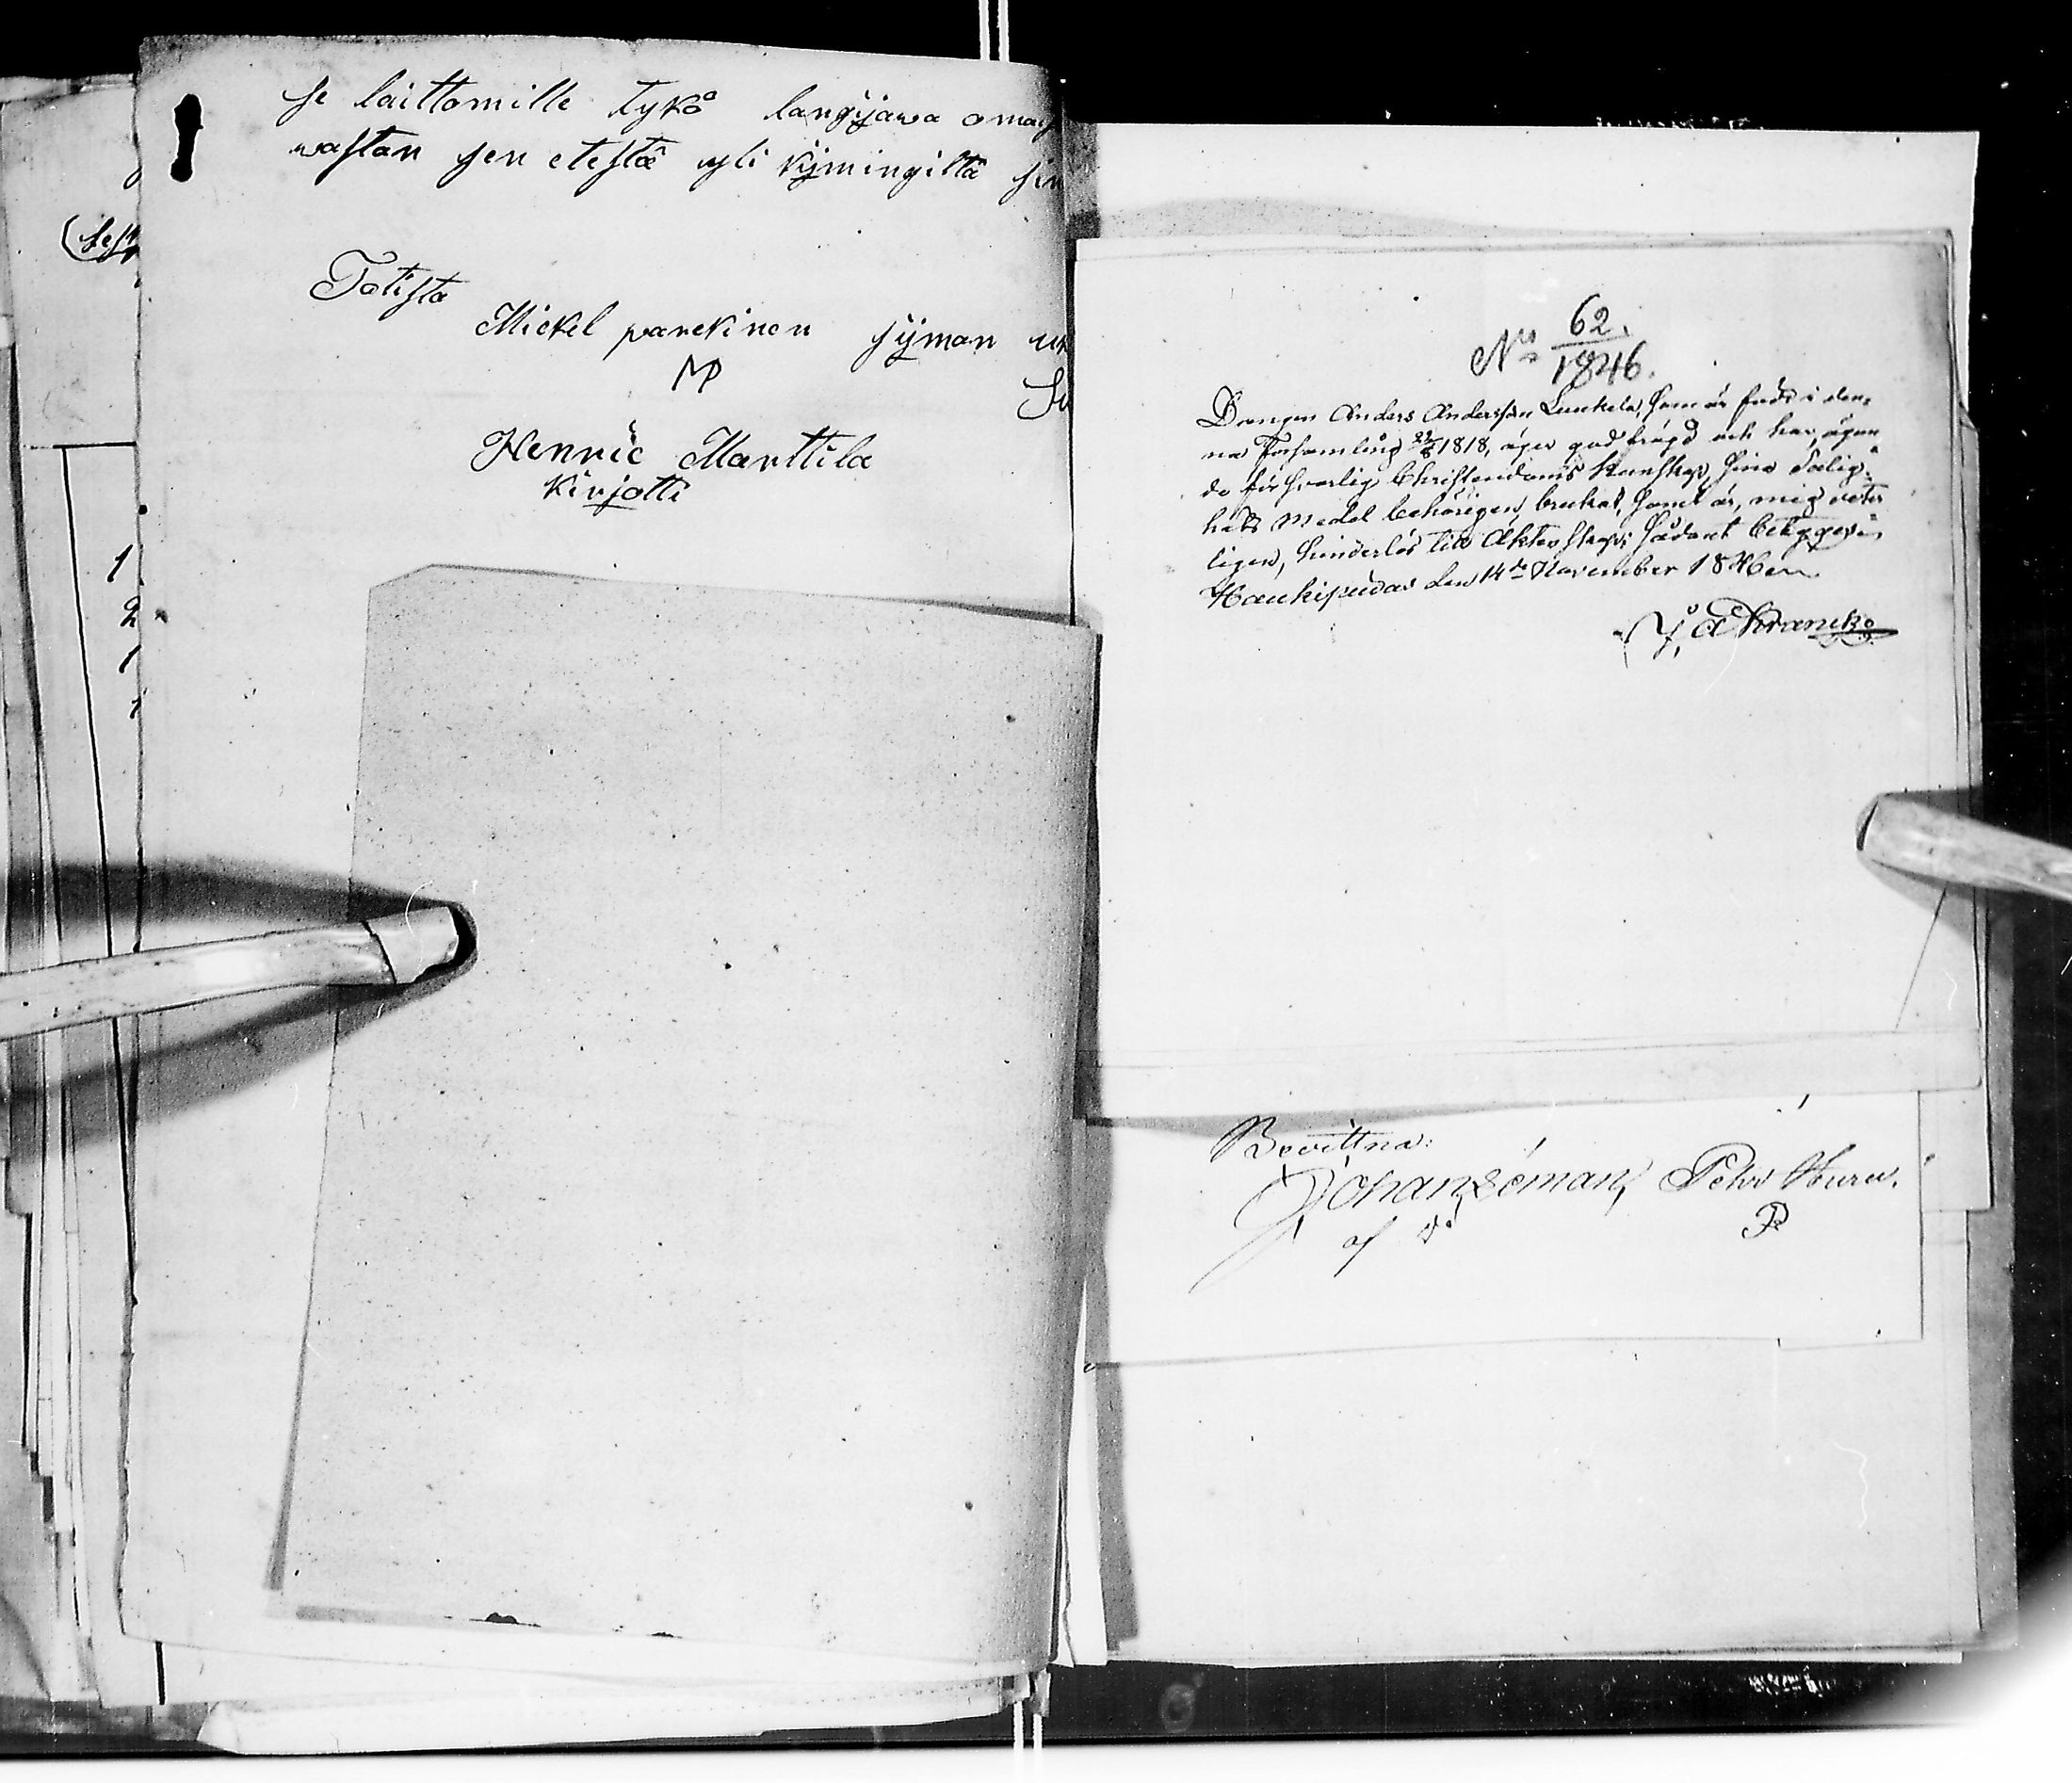 se laittomille tykö langijawa omais
wastan sen etestä yli kijmingiltä
Totista
Mickel parckinen sijman
MP
Henric Marttila
kirjotti
(sest
1
2
1
1
No 62.
1846.
Drengen Anders Andersson Lunkela, som är född i den,,
na Församling 22/8 1818, äger god frägd och har, ägan
de försvarlig Christendoms kunskap, sina Salig,,
hets Medel behörigen brukat, samt är, mig veter
ligen, hinderlös till Äktenskap; Sådant betygges
Haukipudas den 14de November 1846
J. A. Chranck
Bevittna:
Johan Seman, Pehr Huru.
af PR